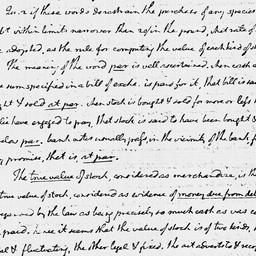 Qu. 2 if these words do restrain the purchase of any species
bt within limits narrower than 20/ in the pound, that rate of
adopted, as the rule for computing the value of each kind of
The meaning of the word par is well ascertained. when cash a
sum specified in a bill of exche. is paid for it, that bill is sai
ght & sold at par. when stock is bought & sold for more or less t
lic have engaged to pay, that stock is said to have been bought &
below par. bank notes usually pass, in the vicinity of the bank, f
promise, that is, at par.
The true value of stock, considered as merchandize, is th
true value of stock, considered as evidence of money due from deb
by the law as being precisely so much cash as was
paid. hence it seems that the value of stock is of two kinds,
& fluctuating, the other legal & fixed. the act adverts to & reco